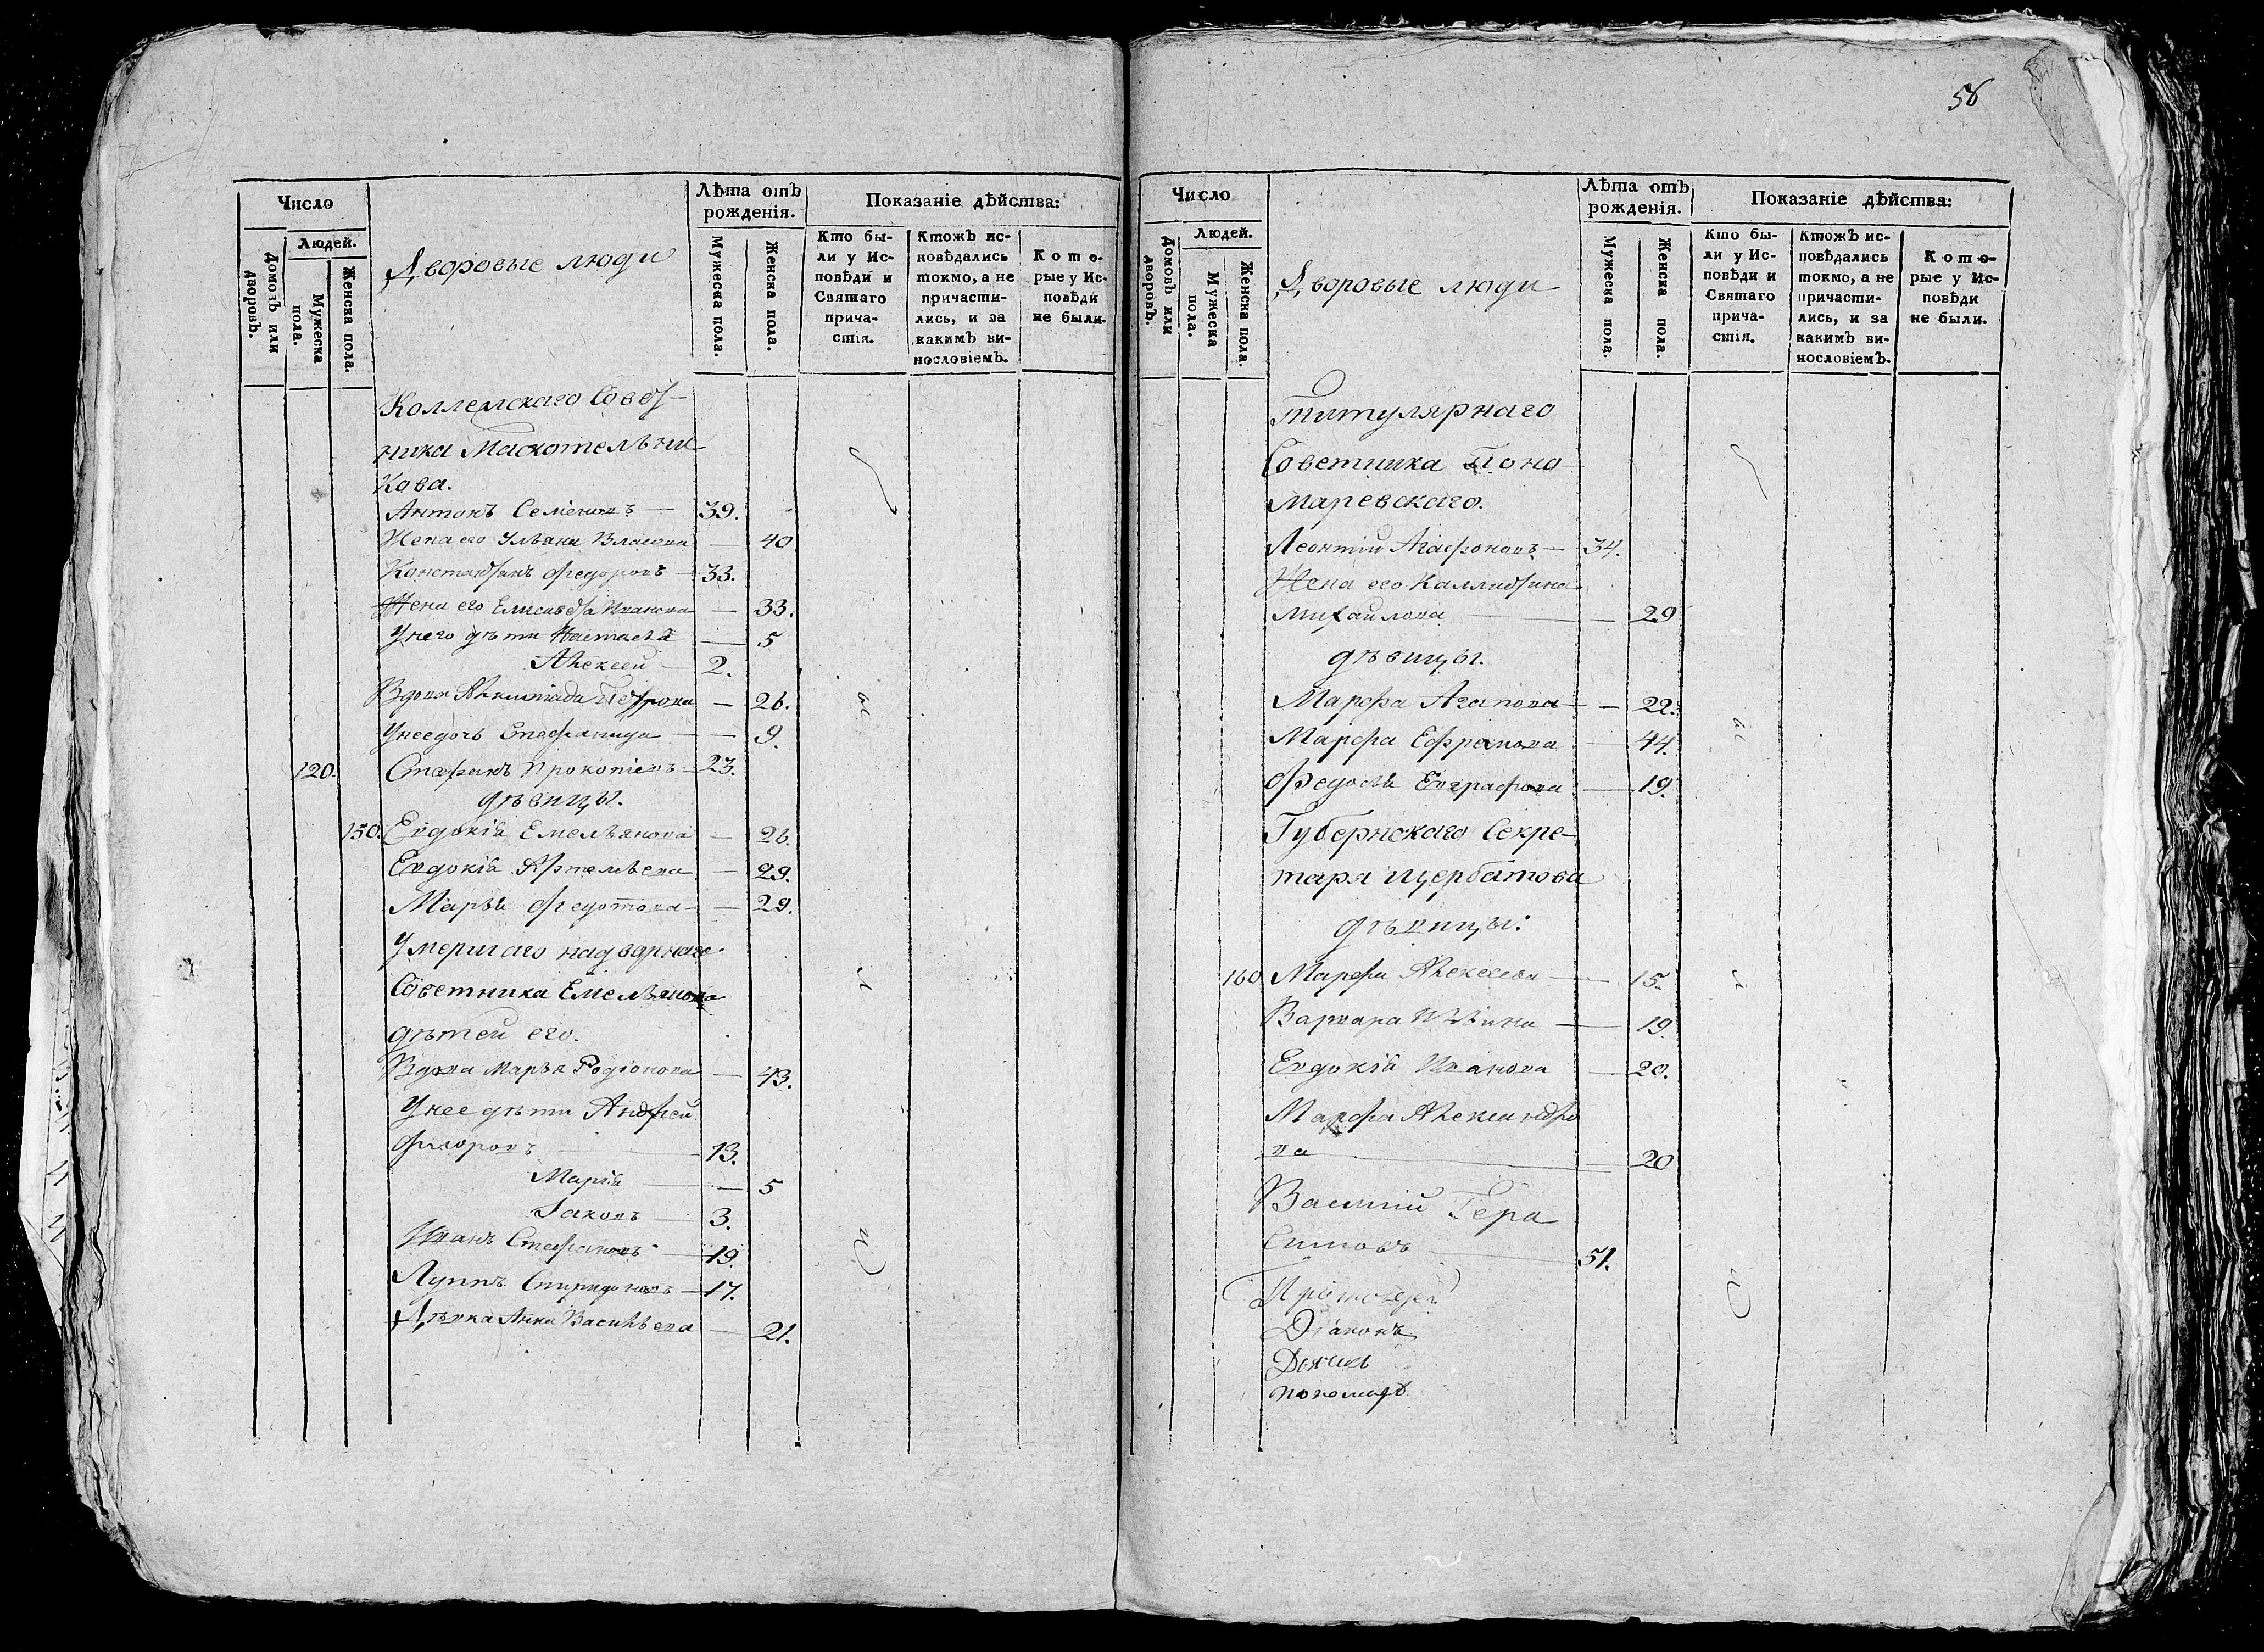 Число
Людей.
Домовъ или дворовъ.
Мужеска пола.
Женска пола.
Дворовые люди
Лѣта отъ рожденія.
Мужеска пола.
Женска пола.
Показаніе дѣйства:
Кто были у Исповѣди и Святаго причастія.
Ктожъ исповѣдались токмо, а не причастились, и за какимъ винословіемъ.
Которые у Исповѣди не были.
Совѣт-
ника Маскотельни
кова.
Антонъ Семеновъ — 39.
Жена его Ульяна Власова — 40
Константинъ Федоровъ — 33.
Жена его Елисавета Иванова — 33.
У него дѣти Настасья — 5
Алексей — 2.
Вдова Петрова — 26.
У нее дочь Стефанида — 9.
120. Стефанъ Прокопіевъ — 23.
дѣвицы.
150. Евдокія Емельянова — 26.
Евдокія Артемьева — 29.
Марья Федотова — 29.
Умершаго надворнаго
Советника Емельянова
дѣтей его.
Вдова Марья Родіонова — 43.
У нее дѣти Андрей
Федоровъ — 13.
Марія — 5
Іаковъ — 3.
Иванъ Стефановъ — 19.
Луппъ Спиридоновъ — 17.
Дѣвка Анна Васильева — 21.
58
Число
Людей.
Домовъ или дворовъ.
Мужеска пола.
Женска пола.
Дворовые люди
Лѣта отъ рожденія.
Мужеска пола.
Женска пола.
Показаніе дѣйства:
Кто были у Исповѣди и Святаго причастія.
Ктожъ исповѣдались токмо, а не причастились, и за какимъ винословіемъ.
Которые у Исповѣди не были.
Титулярнаго
Советника Поно
маревскаго.
Леонтій Агафоновъ — 34.
Жена его
Михайлова — 29
дѣвицы.
Марфа Агапова — 22.
Марфа Ефремова — 44.
Федосья Евграфова — 19.
Губернскаго Секре-
таря Щербатова
дѣвицы:
160 Марфа Алексеева — 15.
Варвара — 19.
Евдокія Иванова — 20.
Марфа Александро
ва — 20
Василій Гера
симовъ — 51.
Протоіерей
Діаконъ
Дьячекъ
пономарь